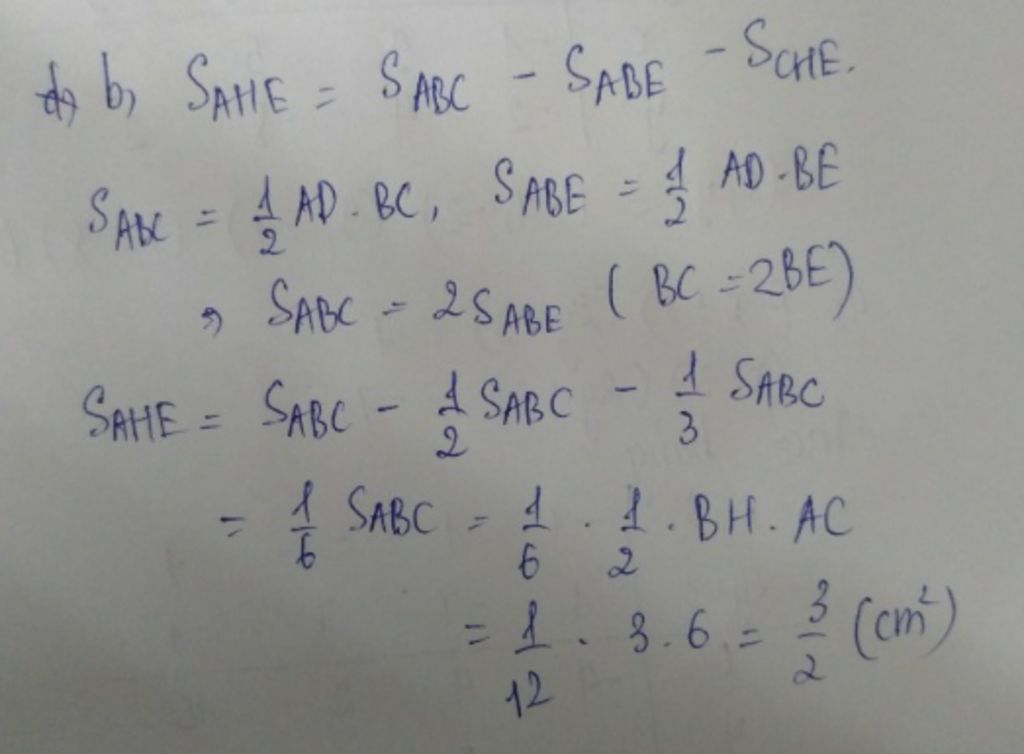 b, SAHE = SABC - SABE - SCHE.
SABC = 1/2 AD . BC, SABE = 1/2 AD . BE
, SABC = 2SABE ( BC = 2BE)
SAHE = SABC - 1/2 SABC - 1/3 SABC
= 1/6 SABC = 1/6 . 1/2 . BH . AC
= 1/12 . 3.6 = 3/2 (cm²)